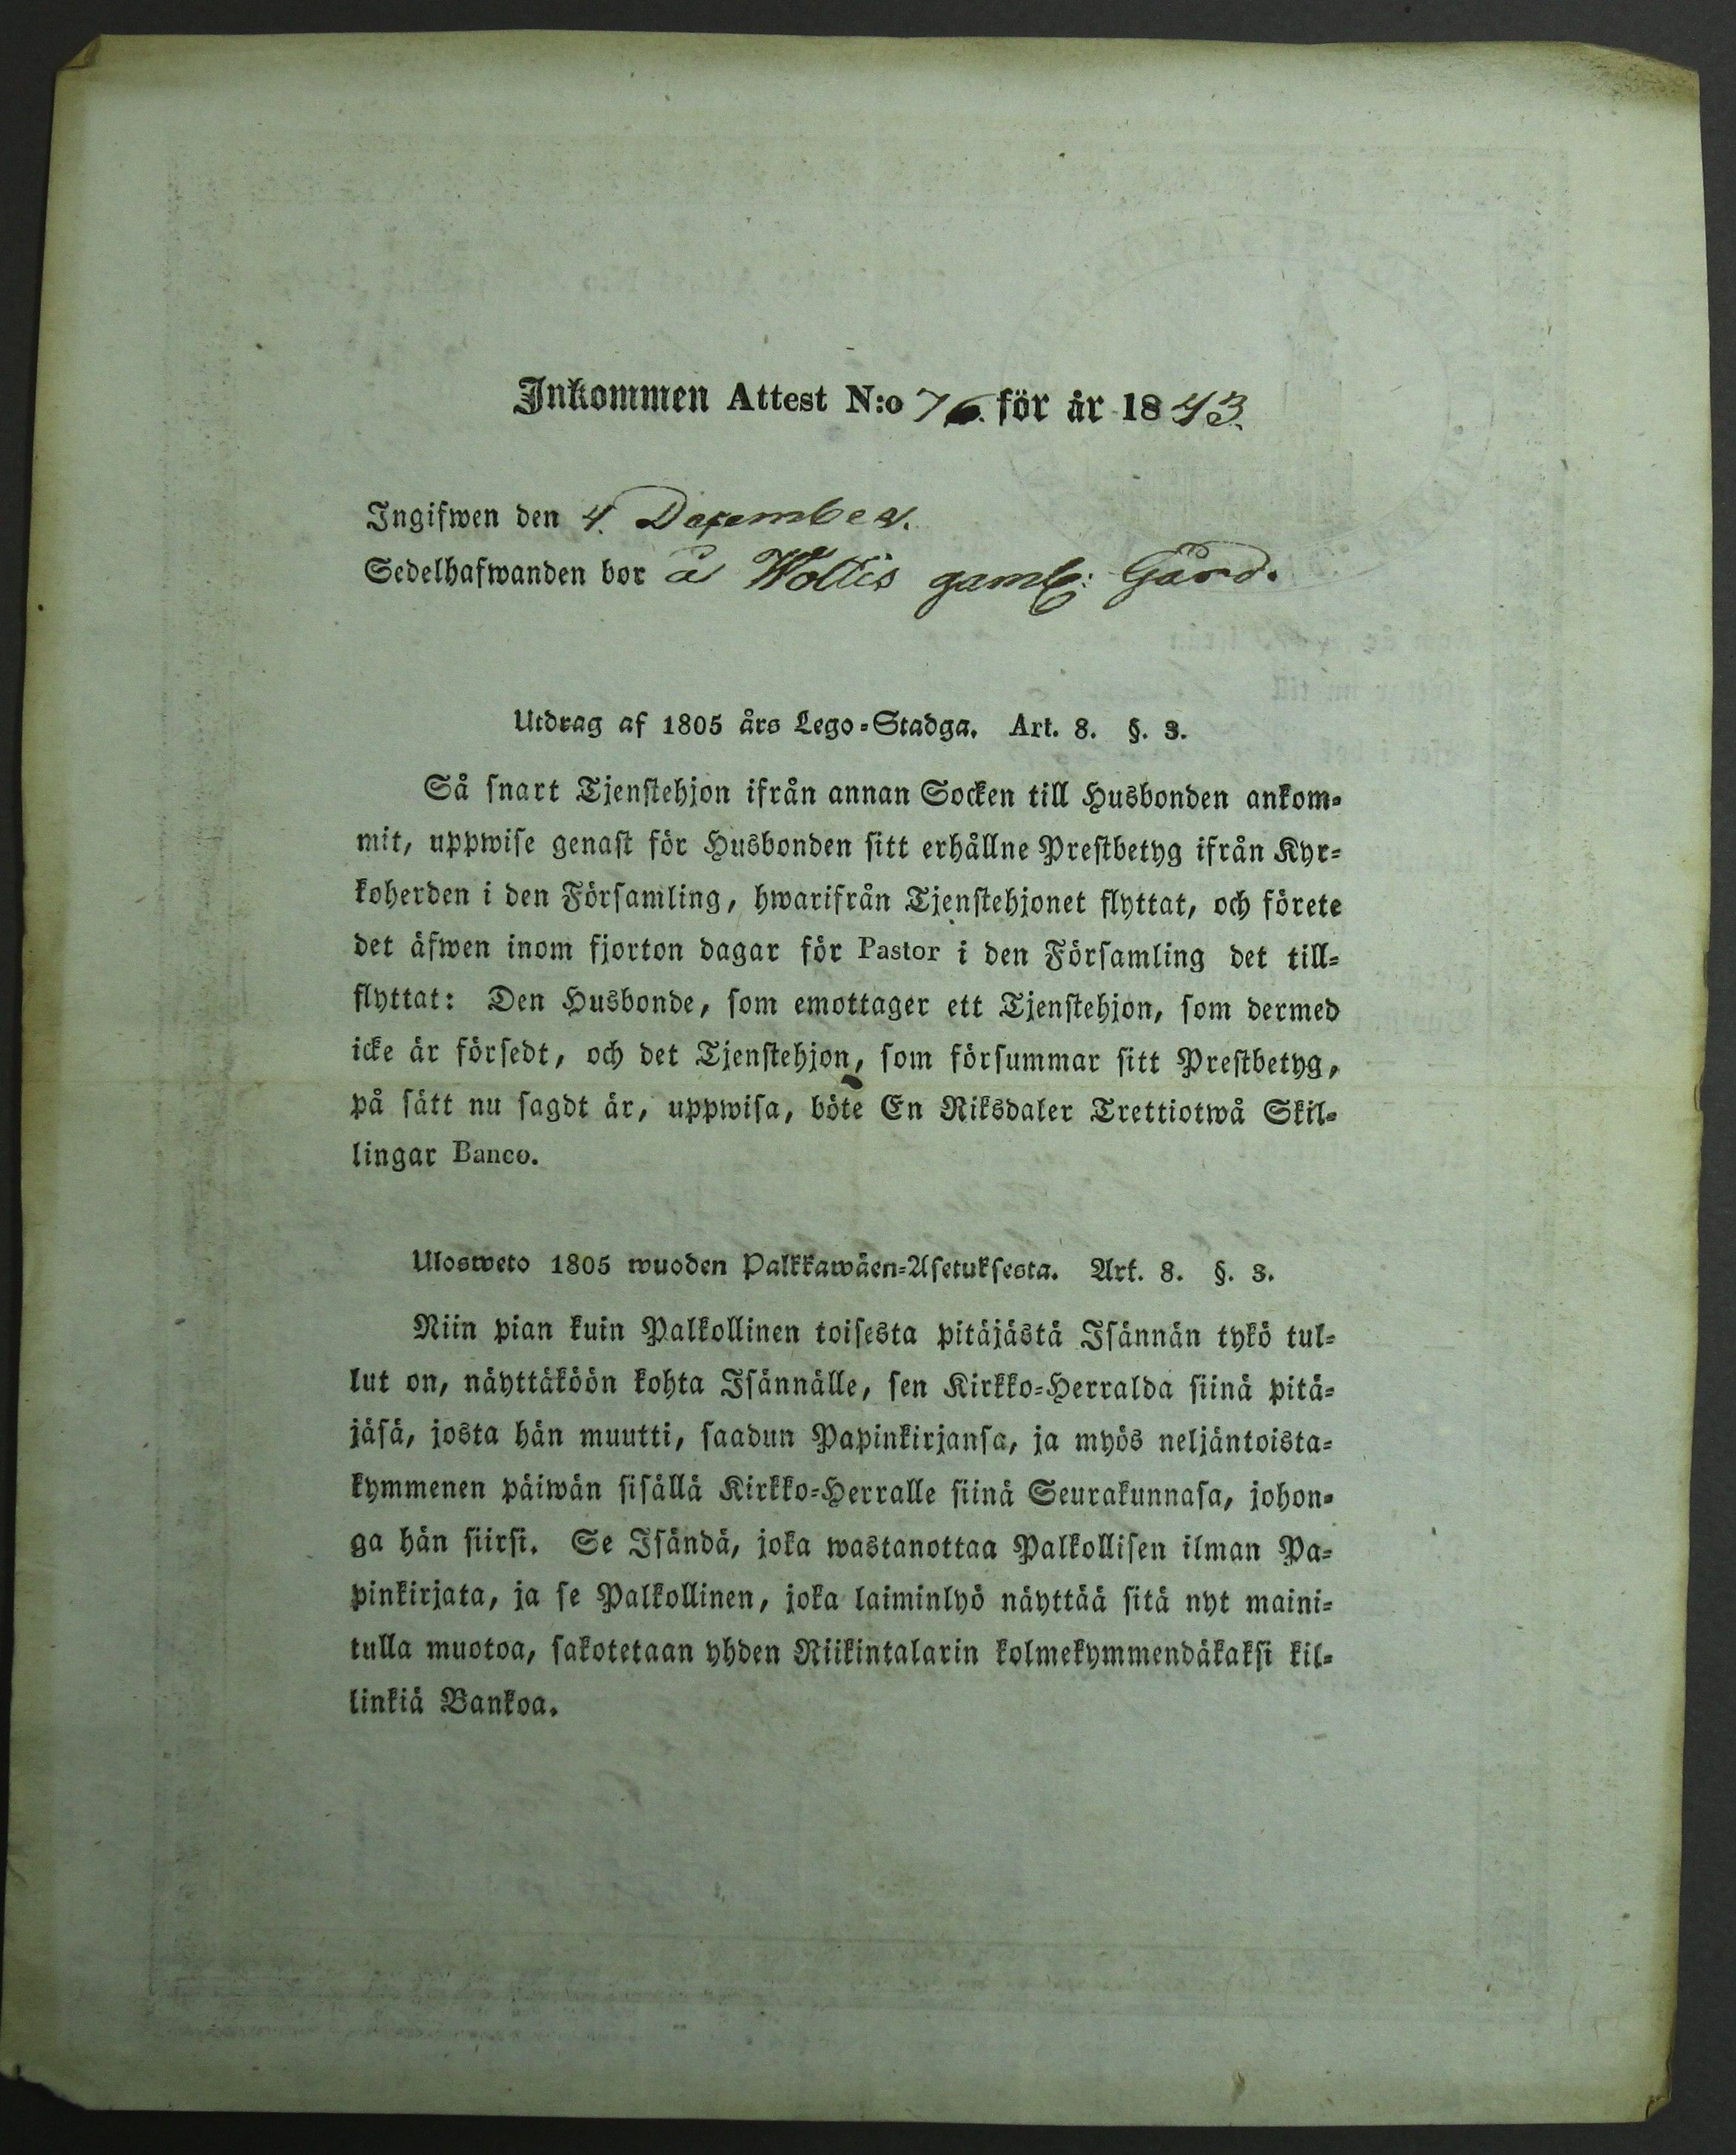 Inkommen Attest N:o 76. för år 1843.
Ingifwen den 4. December.
Sedelhafwanden bor å Wollis gaml: Gård.
Utdrag af 1805 års Lego-Stadga. Art. 8. §. 3.
Så snart Tjenstehjon ifrån annan Socken till Husbonden ankom-
mit, uppwise genast för Husbonden sitt erhållne Prestbetyg ifrån Kyr-
koherden i den Församling, hwarifrån Tjenstehjonet flyttat, och förete
det äfwen inom fjorton dagar för Pastor i den Församling det till-
flyttat: Den Husbonde, som emottager ett Tjenstehjon, som dermed
icke är försedt, och det Tjenstehjon, som försummar sitt Prestbetyg,
på sätt nu sagdt är, uppwisa, böte En Riksdaler Trettiotwå Skil-
lingar Banco.
Ulosweto 1805 wuoden Palkkawäen-Asetuksesta. Art. 8. §. 3.
Niin pian kuin Palkollinen toisesta pitäjästä Isännän tykö tul-
lut on, näyttäköön kohta Isännälle, sen Kirkko-Herralda siinä pitä-
jäsä, josta hän muutti, saadun Papinkirjansa, ja myös neljäntoista-
kymmenen päiwän sisällä Kirkko-Herralle siinä Seurakunnasa, johon-
ga hän siirsi. Se Isändä, joka wastanottaa Palkollisen ilman Pa-
pinkirjata, ja se Palkollinen, joka laiminlyö näyttää sitä nyt maini-
tulla muotoa, sakotetaan yhden Riikintalarin kolmekymmendäkaksi kil-
linkiä Bankoa.